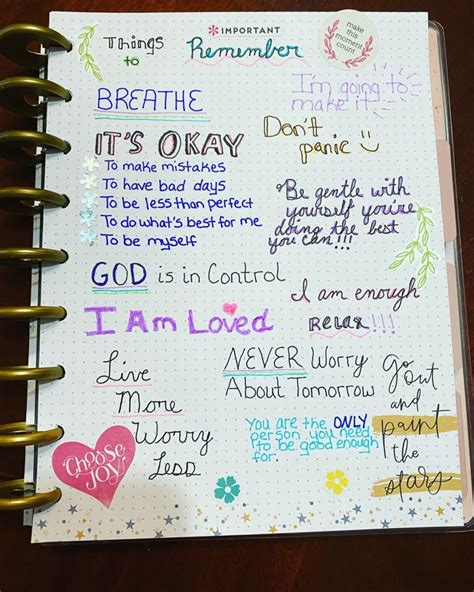 *IMPORTANT
make
this
moment
count
Things
to
Remember
BREATHE
I'm going to
make it
IT'S OKAY
Don't
panic
To make mistakes
To have bad days
To be less than perfect
To do what's best for me
To be myself
Be gentle with
yourself you're
doing the best
you can!!!
GOD is in Control
I am enough
I Am Loved
RELAX!!!
Live
More
Worry
Less
NEVER Worry
About Tomorrow
Go
out
and
paint
the
stars
You are the ONLY
person you need
to be good enough
for.
Choose
Joy